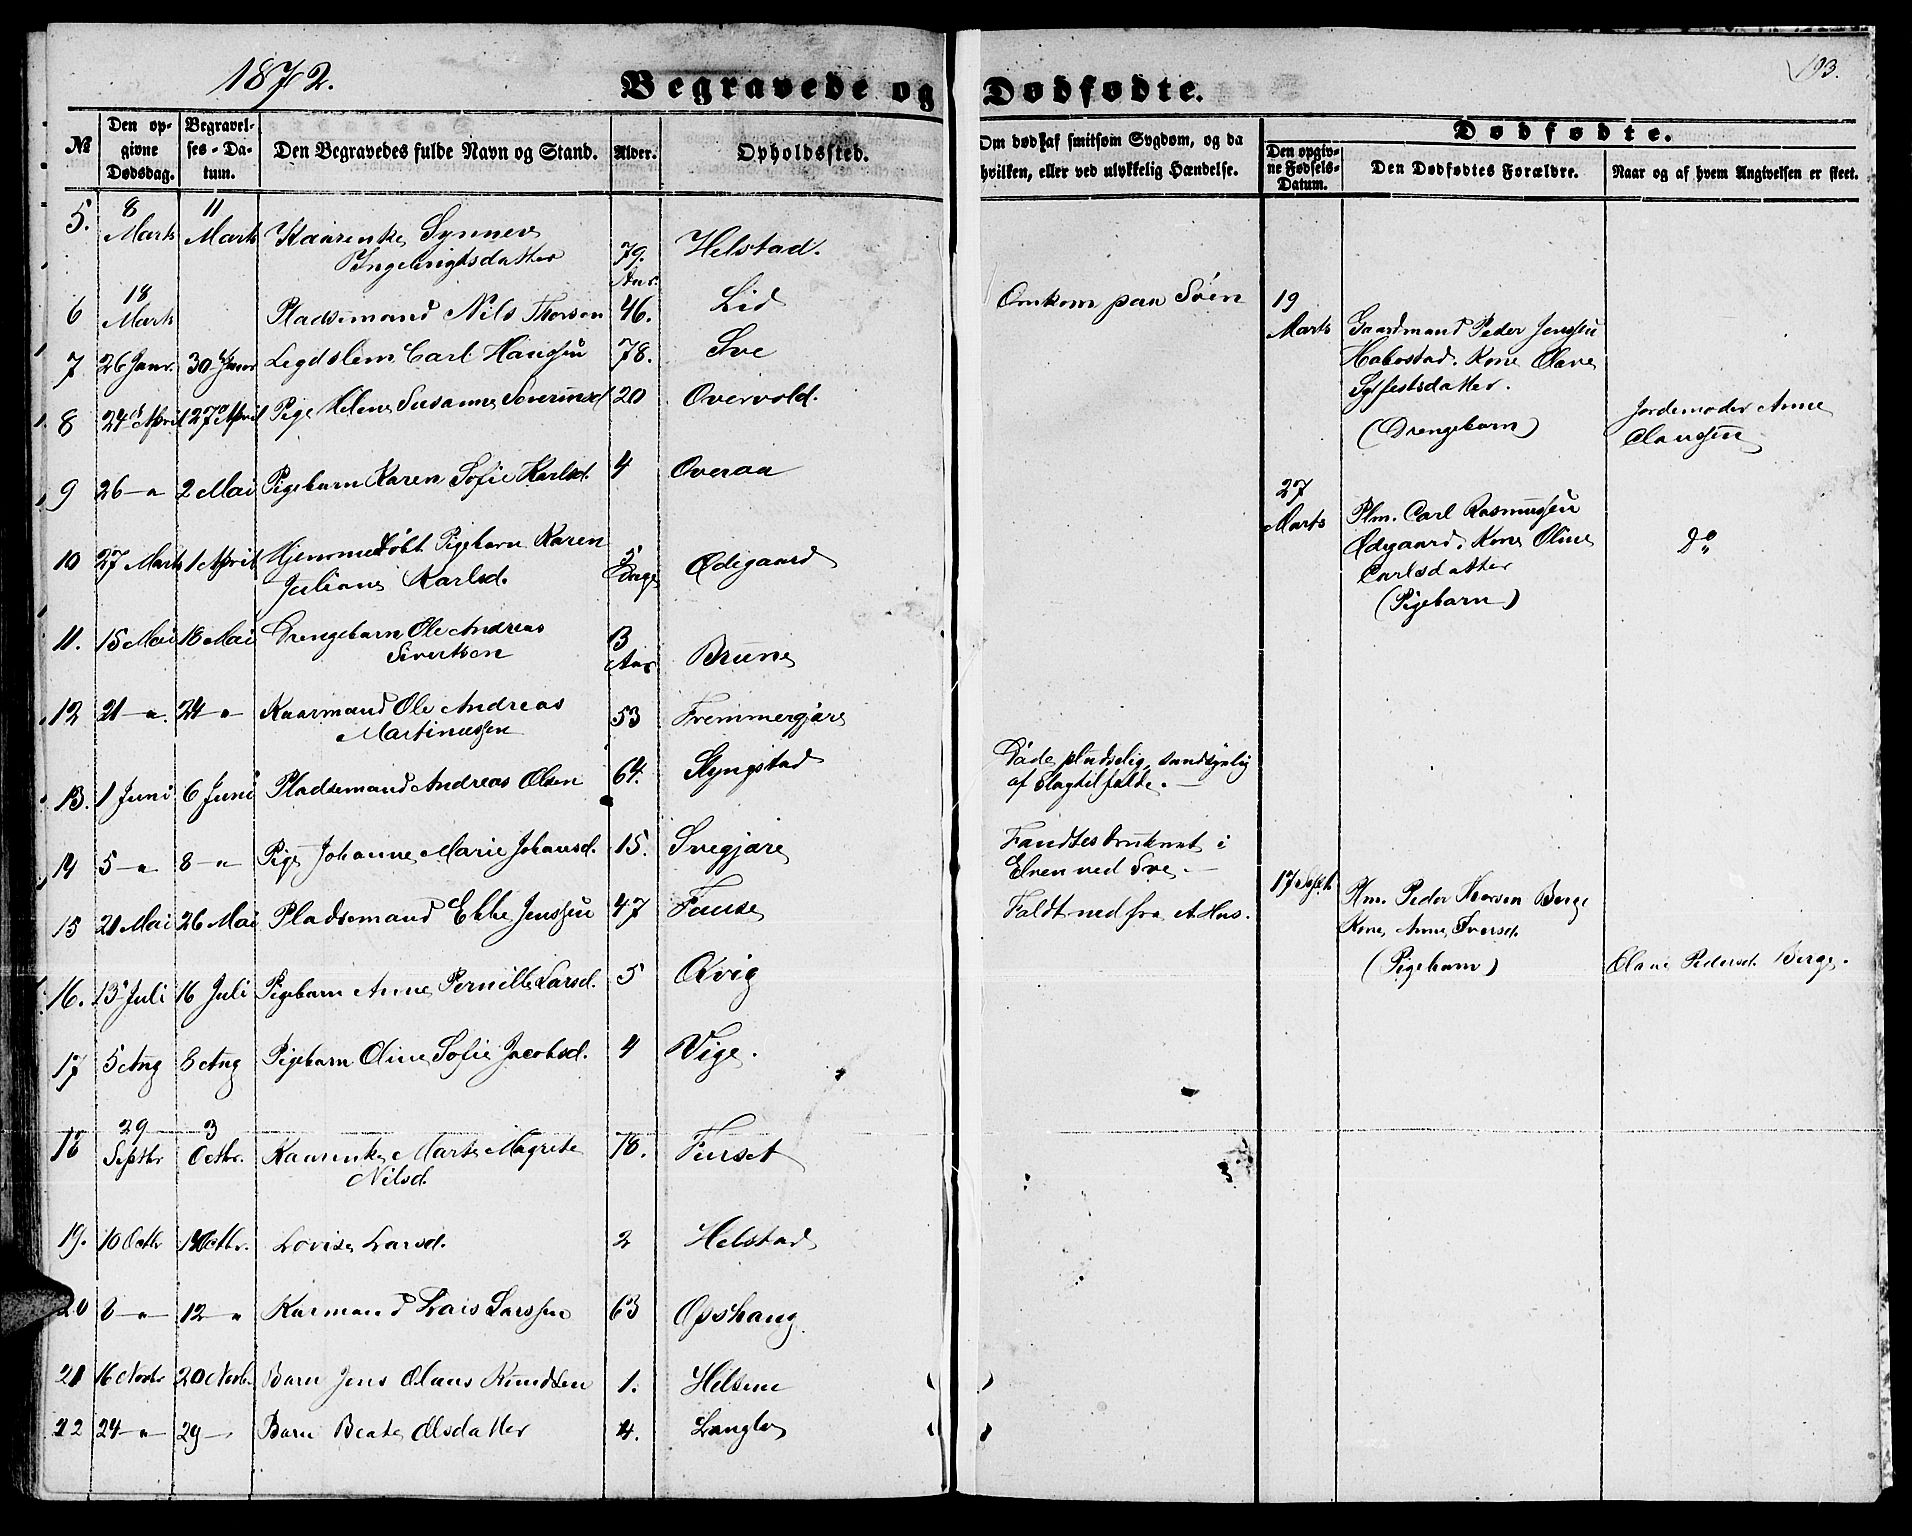 1872.
Begravede og Dødfødte.
193.
№
Den opgivne Dødsdag.
Begravelses-Datum.
Den Begravedes fulde Navn og Stand.
Alder.
Opholdssted.
Om død af smitsom Sygdom, og da hvilken, eller ved ulykkelig Hændelse.
Dødfødte.
Den opgivne Fødsels-Datum.
Den Dødfødtes Forældre.
Naar og af hvem Angivelsen er skeet.
5. 8 Marts 11 Marts Kaarenke Synneve
Ingebrigtsdatter 79. Aar. Helstad.
6 18 Marts Pladsemand Nils Thorsen 46. Lid Omkom paa Søen
7 26 Janr. 30 Janr Legdslem Carl Hanssen 78. Sve
8 24 April 27 April Pige Helene Susanne Severinsd 20 Overvold.
9 26 — " 2 Mai Pigebarn Karen Sofie Karlsd. 4 Overaa
10 27 Marts 1 April Hjemmedøbt Pigebarn Karen
Juliane Karlsd. 5 Dage Ødegaard
11. 15 Mai 18 Mai Drengebarn Ole Andreas
Sivertsen 3 Aar Brune
12 21 — " 24 — " Kaarmand Ole Andreas
Martinussen 53 Fremmergjøre
13. 1 Juni 6 Juni Pladsemand Andreas Olsen 64. Slyngstad Døde pludselig, sandsynlig
af Slagtilfælde. —
14 5 — " 8 — " Pige Johanne Marie Johansd. 15. Svegjære Fandtes druknet i
Elven ved Sve. —
15 21 Mai 26 Mai Pladsemand Ebbe Jenssen 47 Fause Faldt ned fra et Hus.
16. 13 Juli 16 Juli Pigebarn Anne Pernille Larsd. 5 Qvig
17 5 Aug 8 Aug Pigebarn Oline Sofie Jacobsd. 4 Vige.
18 29 Septbr 3 Octbr. Kaarenke Marte Magrete
Nilsd. 78. Furset
19. 10 Octbr Octbr. Lovise Larsd. 2 Helstad
20 8 — " 12 — " Karmand Lars Larssen 63 Opshaug
21 16 Novbr 20 Novb. Barn Jens Olaus Knudsen 1. Helsem
22 24 — " 29 — Barn Beate Olsdatter 4. Langlo
19 Marts Gaardmand Peder Jenssen
Habostad. Kone Olave
Sylfestsdatter.
(Drengebarn) Jordemoder Anne
Claussen
27 Marts Plm. Carl Rasmussen
Ødegaard. Kone Oline
Carlsdatter
(Pigebarn) Do
17 Sept. Plm. Peder Thorsen Berge
Kone Anne Iversd.
(Pigebarn) Olave Pedersd. Berge.